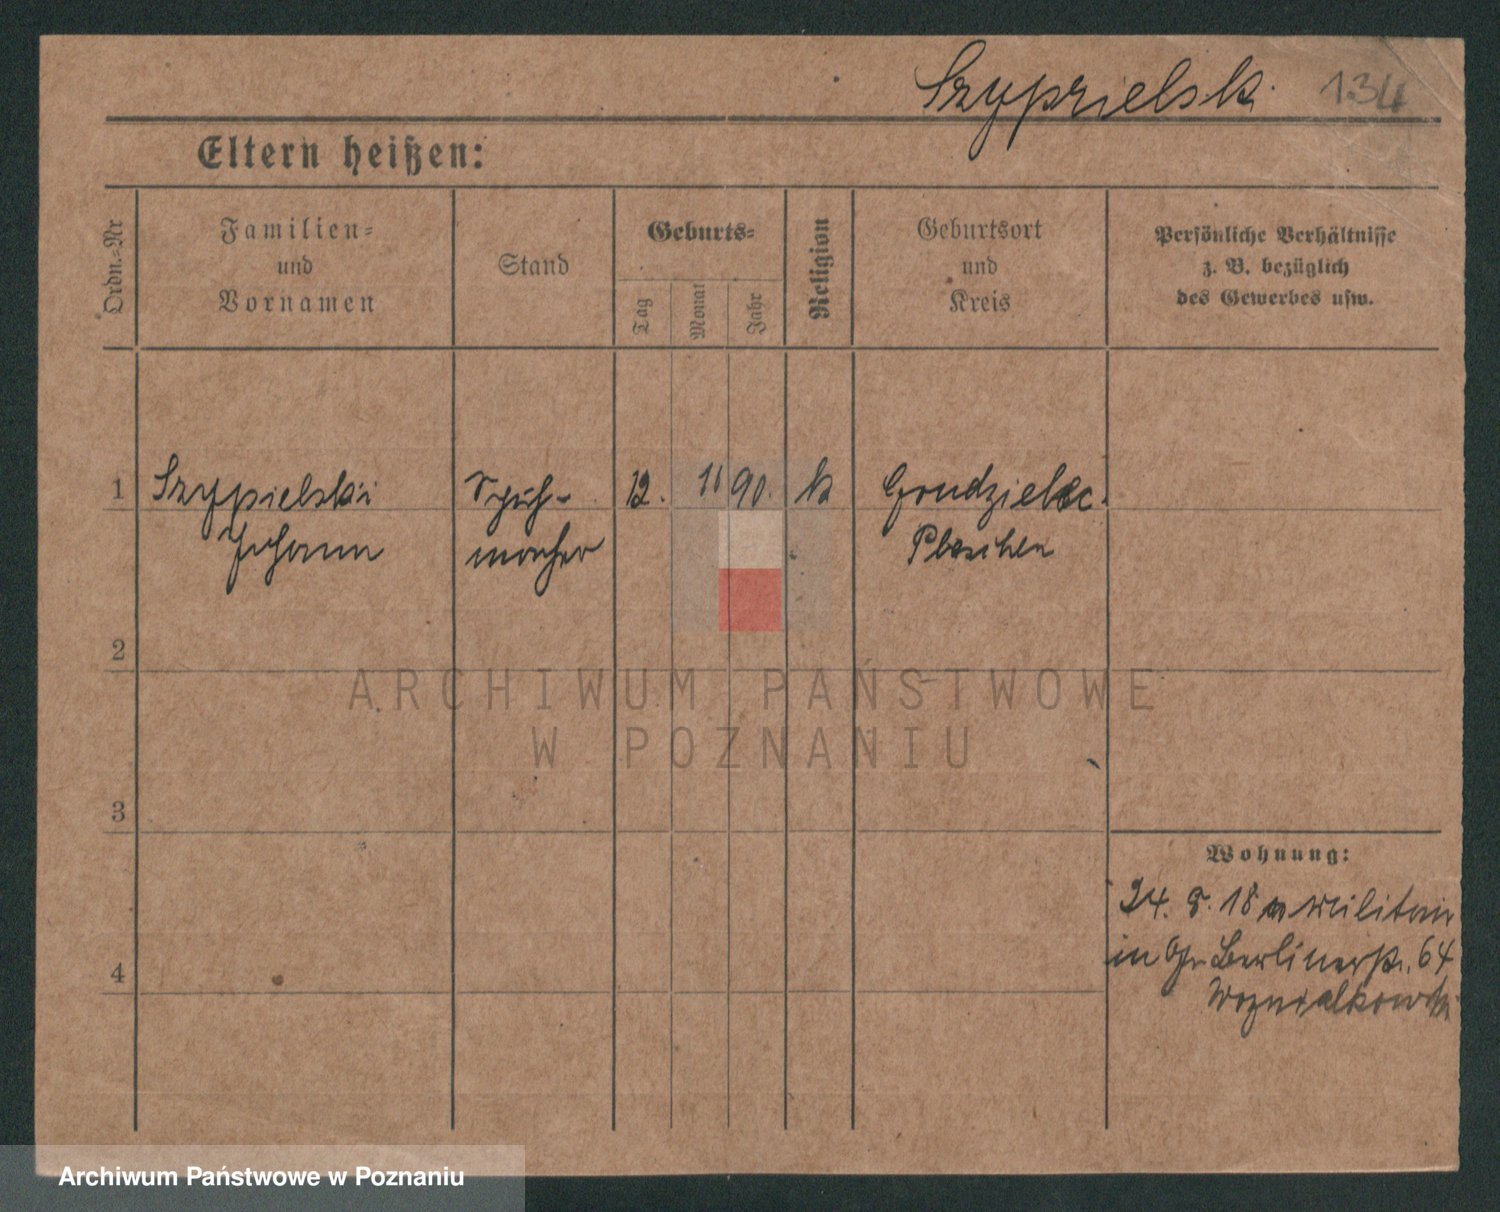 Szyprielski 134
Eltern heißen:
Ordn.-Nr
Familien=
und
Vornamen
Stand
Geburts=
Tag
Monat
Jahr
Religion
Geburtsort
und
Kreis
Persönliche Verhältnisse
z. B. bezüglich
des Gewerbes usw.
1 Szyppielski Schuh- 12. 11 90. k Grudzielec.
Johann macher Pleschen
2
3
Wohnung:
24. 8. 18 Militair
in Berlinerstr. 64
4
Wozniakowski
ARCHIWUM PAŃSTWOWE
W POZNANIU
Archiwum Państwowe w Poznaniu